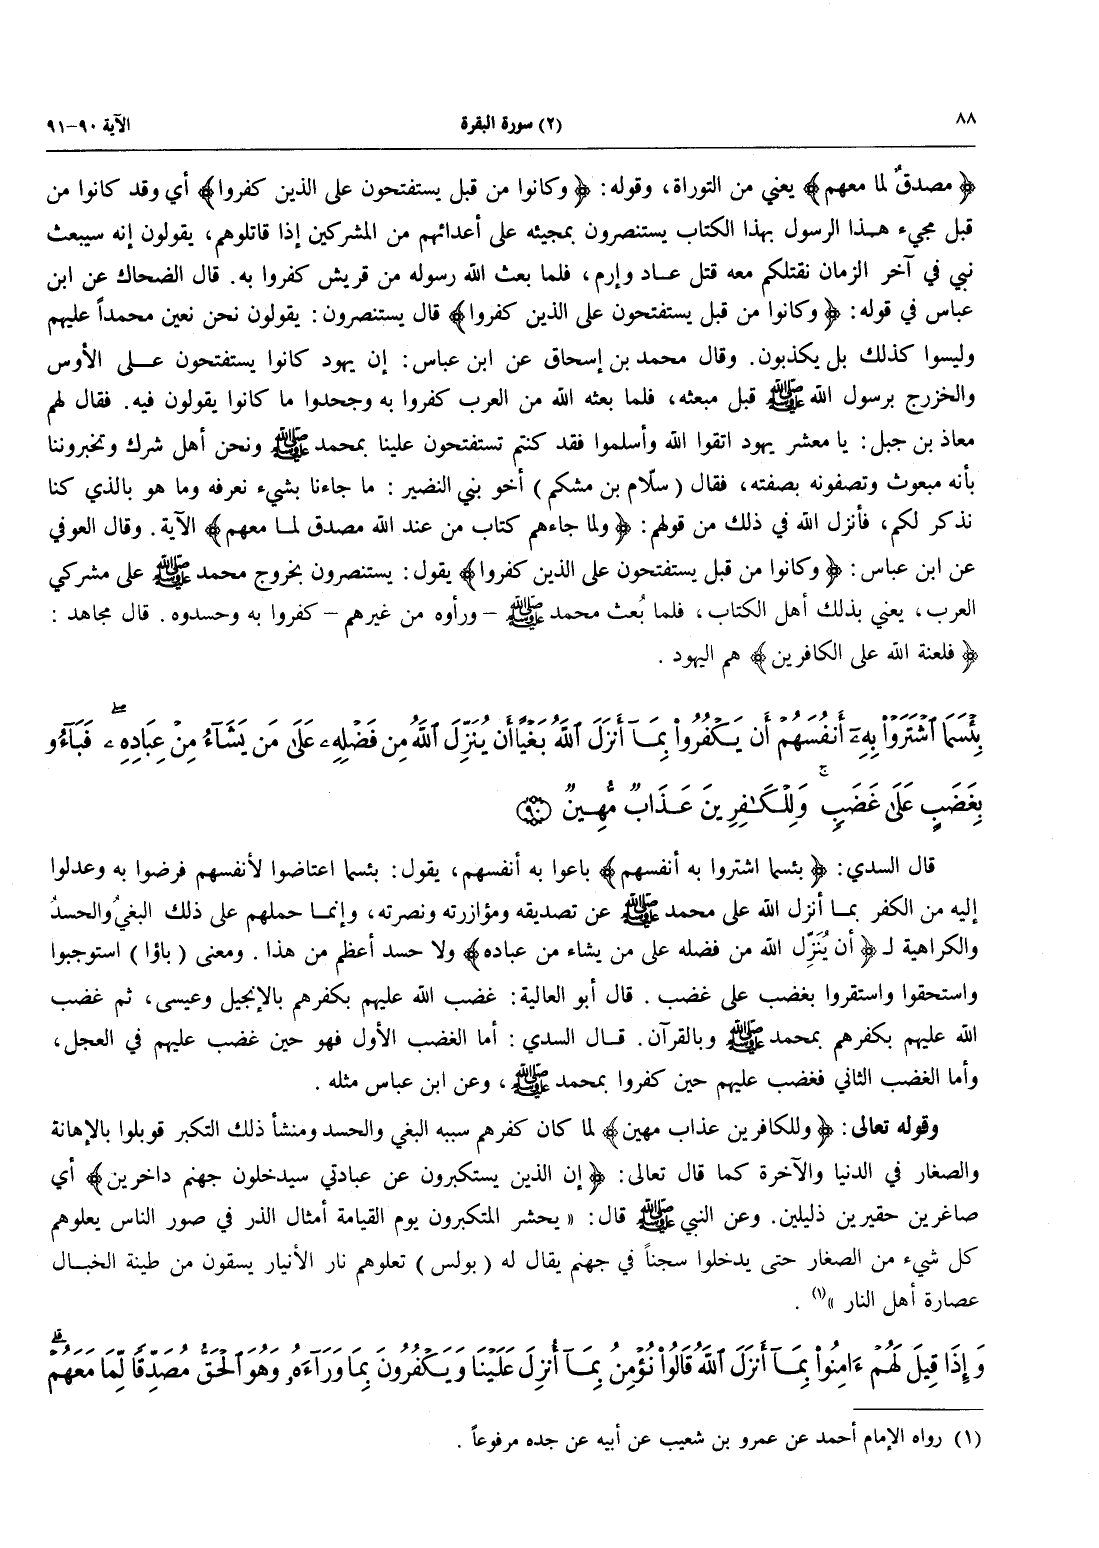 ٨٨ (٢) سورة البقرة الآية ٩٠-٩١
﴿ مصدقٌ لما معهم ﴾ يعني من التوراة، وقوله: ﴿ وكانوا من قبل يستفتحون على الذين كفروا ﴾ أي وقد كانوا من
قبل مجيء هذا الرسول بهذا الكتاب يستنصرون بمجيئه على أعدائهم من المشركين إذا قاتلوهم، يقولون إنه سيبعث
نبي في آخر الزمان نقتلكم معه قتل عاد وإرم، فلما بعث الله رسوله من قريش كفروا به. قال الضحاك عن ابن
عباس في قوله: ﴿ وكانوا من قبل يستفتحون على الذين كفروا ﴾ قال يستنصرون: يقولون نحن نعين محمداً عليهم
وليسوا كذلك بل يكذبون. وقال محمد بن إسحاق عن ابن عباس: إن يهود كانوا يستفتحون على الأوس
والخزرج برسول الله ﷺ قبل مبعثه، فلما بعثه الله من العرب كفروا به وجحدوا ما كانوا يقولون فيه. فقال لهم
معاذ بن جبل: يا معشر يهود اتقوا الله وأسلموا فقد كنتم تستفتحون علينا بمحمد ﷺ ونحن أهل شرك وتخبروننا
بأنه مبعوث وتصفونه بصفته، فقال ( سلّام بن مشكم ) أخو بني النضير : ما جاءنا بشيء نعرفه وما هو بالذي كنا
نذكر لكم، فأنزل الله في ذلك من قولهم: ﴿ ولما جاءهم كتاب من عند الله مصدق لما معهم ﴾ الآية. وقال العوفي
عن ابن عباس: ﴿ وكانوا من قبل يستفتحون على الذين كفروا ﴾ يقول: يستنصرون بخروج محمد ﷺ على مشركي
العرب، يعني بذلك أهل الكتاب، فلما بُعث محمد ﷺ – ورأوه من غيرهم – كفروا به وحسدوه. قال مجاهد :
﴿ فلعنة الله على الكافرين ﴾ هم اليهود .
بِئْسَمَا ٱشْتَرَوْا۟ بِهِۦٓ أَنفُسَهُمْ أَن يَكْفُرُوا۟ بِمَآ أَنزَلَ ٱللَّهُ بَغْيًا أَن يُنَزِّلَ ٱللَّهُ مِن فَضْلِهِۦ عَلَىٰ مَن يَشَآءُ مِنْ عِبَادِهِۦ ۖ فَبَآءُو
بِغَضَبٍ عَلَىٰ غَضَبٍ ۚ وَلِلْكَٰفِرِينَ عَذَابٌ مُّهِينٌ ﴿٩٠﴾
قال السدي: ﴿ بئسما اشتروا به أنفسهم ﴾ باعوا به أنفسهم، يقول: بئسما اعتاضوا لأنفسهم فرضوا به وعدلوا
إليه من الكفر بما أنزل الله على محمد ﷺ عن تصديقه ومؤازرته ونصرته، وإنما حملهم على ذلك البغيُ والحسدُ
والكراهية لـ ﴿ أن يُنَزِّل الله من فضله على من يشاء من عباده ﴾ ولا حسد أعظم من هذا . ومعنى ( باؤا ) استوجبوا
واستحقوا واستقروا بغضب على غضب . قال أبو العالية: غضب الله عليهم بكفرهم بالإنجيل وعيسى، ثم غضب
الله عليهم بكفرهم بمحمد ﷺ وبالقرآن. قال السدي : أما الغضب الأول فهو حين غضب عليهم في العجل،
وأما الغضب الثاني فغضب عليهم حين كفروا بمحمد ﷺ، وعن ابن عباس مثله .
وقوله تعالى: ﴿ وللكافرين عذاب مهين ﴾ لما كان كفرهم سببه البغي والحسد ومنشأ ذلك التكبر قوبلوا بالإهانة
والصغار في الدنيا والآخرة كما قال تعالى: ﴿ إن الذين يستكبرون عن عبادتي سيدخلون جهنم داخرين ﴾ أي
صاغرين حقيرين ذليلين. وعن النبي ﷺ قال: « يحشر المتكبرون يوم القيامة أمثال الذر في صور الناس يعلوهم
كل شيء من الصغار حتى يدخلوا سجناً في جهنم يقال له ( بولس ) تعلوهم نار الأنيار يسقون من طينة الخبال
عصارة أهل النار »(١) .
وَإِذَا قِيلَ لَهُمْ ءَامِنُوا۟ بِمَآ أَنزَلَ ٱللَّهُ قَالُوا۟ نُؤْمِنُ بِمَآ أُنزِلَ عَلَيْنَا وَيَكْفُرُونَ بِمَا وَرَآءَهُۥ وَهُوَ ٱلْحَقُّ مُصَدِّقًا لِّمَا مَعَهُمْ ۗ
(١) رواه الإمام أحمد عن عمرو بن شعيب عن أبيه عن جده مرفوعاً .